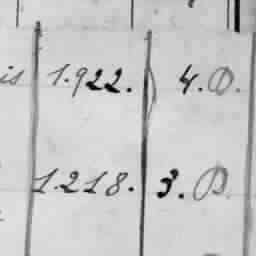 is 1.922. 4. D.
1.218. 3. D.